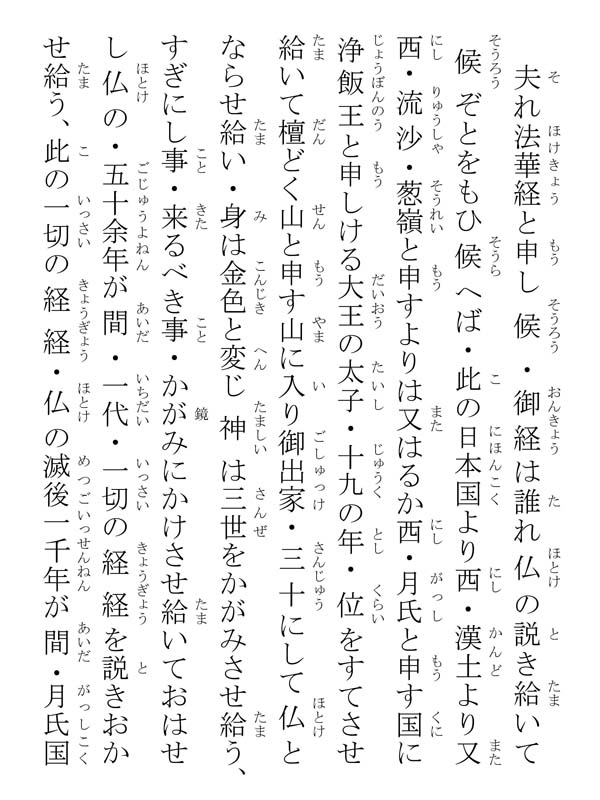 夫れ法華経と申し候・御経は誰れ仏の説き給いて
候ぞとをもひ候へば・此の日本国より西・漢土より又
西・流沙・葱嶺と申すよりは又はるか西・月氏と申す国に
浄飯王と申しける大王の太子・十九の年・位をすてさせ
給いて檀どく山と申す山に入り御出家・三十にして仏と
ならせ給い・身は金色と変じ神は三世をかがみさせ給う、
すぎにし事・来るべき事・かがみにかけさせ給いておはせ
し仏の・五十余年が間・一代・一切の経経を説きおか
せ給う、此の一切の経経・仏の滅後一千年が間・月氏国